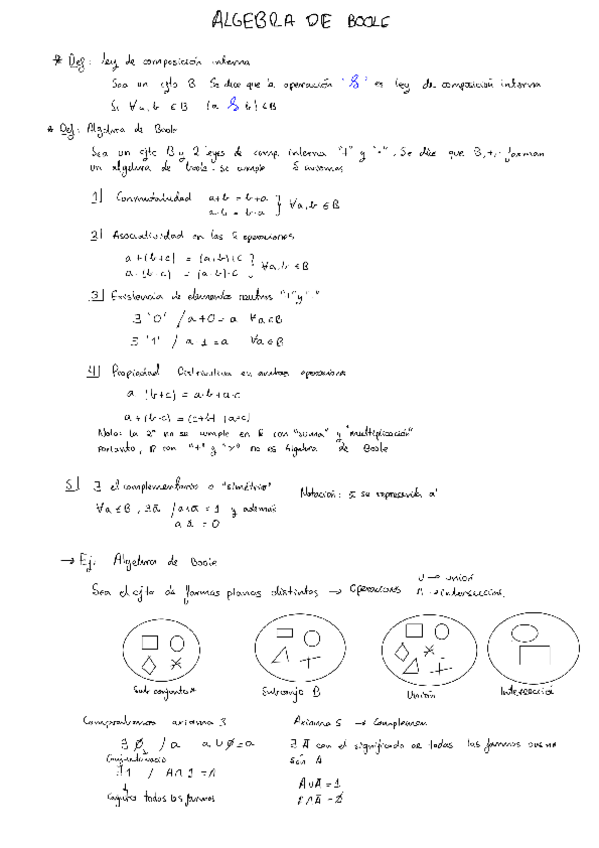 ALGEBRA DE BOOLE
* Def: Ley de composición interna
Sea un cjto B Se dice que la operación "§" es ley de composición interna
Si ∀a,b ∈ B (a § b) ∈ B
* Def: Algebra de Boole
Sea un cjto B y 2 leyes de comp. interna "+" y "·". Se dice que B,+,· forman
un algebra de boole si se cumple 5 axiomas
1| Conmutatividad a+b = b+a
a·b = b·a } ∀a,b ∈ B
2| Asociatividad en las 2 operaciones
a+(b+c) = (a+b)+c
a·(b·c) = (a·b)·c } ∀a,b ∈ B
3| Existencia de elemento neutros "+" y "·"
∃ '0' / a+0=a ∀a∈B
∃ '1' / a·1=a ∀a∈B
4| Propiedad Distributiva en ambas operaciones
a (b+c) = a·b+a·c
a+(b·c) = (a+b) (a+c)
Nota: la 2ª no se cumple en R con "suma" y "multiplicación"
Portanto, R con "+" y "×" no es Algebra de Boole
5| ∃ el complementario o "simétrico"
Notación: ā se representa a'
∀a ∈ B, ∃ā / a+ā = 1 y además
a ā = 0
→ Ej. Algebra de Boole
Sea el cjto de formas planas distintas → Operaciones
U → unión
∩ → intersección
Subconjunto
Subconjo B
Unión
Intersección
Comprobamos axioma 3
∃ ∅ / a a∪∅=a
Conjunto vacío
∃ 1 / A∩1=A
Conjunto todas las formas
Axioma 5 → Complemen
∃ Ā con el significado de todas las formas que no
son A
A∪Ā=1
A∩Ā=∅